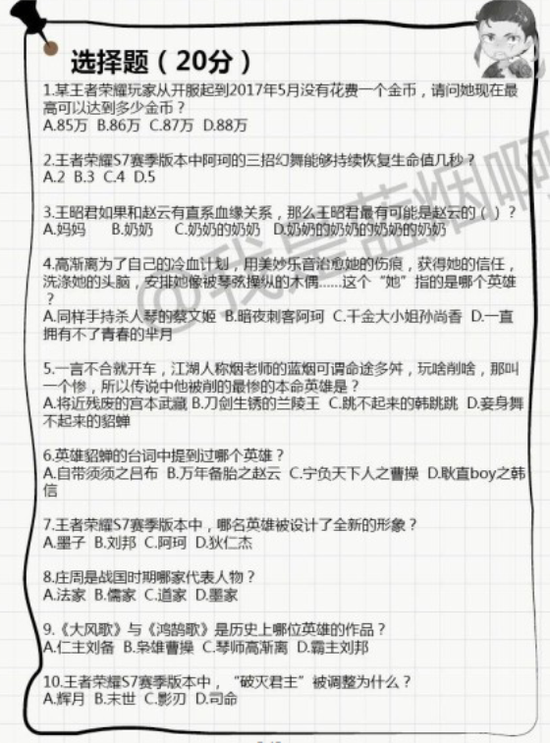 选择题（20分）
1.某王者荣耀玩家从开服起到2017年5月没有花费一个金币，请问她现在最
高可以达到多少金币？
A.85万 B.86万 C.87万 D.88万
2.王者荣耀S7赛季版本中阿珂的三招幻舞能够持续恢复生命值几秒？
A.2 B.3 C.4 D.5
3.王昭君如果和赵云有直系血缘关系，那么王昭君最有可能是赵云的（ ）？
A.妈妈 B.奶奶 C.奶奶的奶奶 D.奶奶的奶奶的奶奶的奶奶
4.高渐离为了自己的冷血计划，用美妙乐音治愈她的伤痕，获得她的信任，
洗涤她的头脑，安排她像被琴弦操纵的木偶......这个“她”指的是哪个英雄
？
A.同样手持杀人琴的蔡文姬 B.暗夜刺客阿珂 C.千金大小姐孙尚香 D.一直
拥有不了青春的芈月
5.一言不合就开车，江湖人称烟老师的蓝烟可谓命途多舛，玩啥削啥，那叫
一个惨，所以传说中他被削的最惨的本命英雄是？
A.将近残废的宫本武藏 B.刀剑生锈的兰陵王 C.跳不起来的韩跳跳 D.妾身舞
不起来的貂蝉
6.英雄貂蝉的台词中提到过哪个英雄？
A.自带须须之吕布 B.万年备胎之赵云 C.宁负天下人之曹操 D.耿直boy之韩
信
7.王者荣耀S7赛季版本中，哪名英雄被设计了全新的形象？
A.墨子 B.刘邦 C.阿珂 D.狄仁杰
8.庄周是战国时期哪家代表人物？
A.法家 B.儒家 C.道家 D.墨家
9.《大风歌》与《鸿鹄歌》是历史上哪位英雄的作品？
A.仁主刘备 B.枭雄曹操 C.琴师高渐离 D.霸主刘邦
10.王者荣耀S7赛季版本中，“破灭君主”被调整为什么？
A.辉月 B.末世 C.影刃 D.司命
@我是蓝烟啊